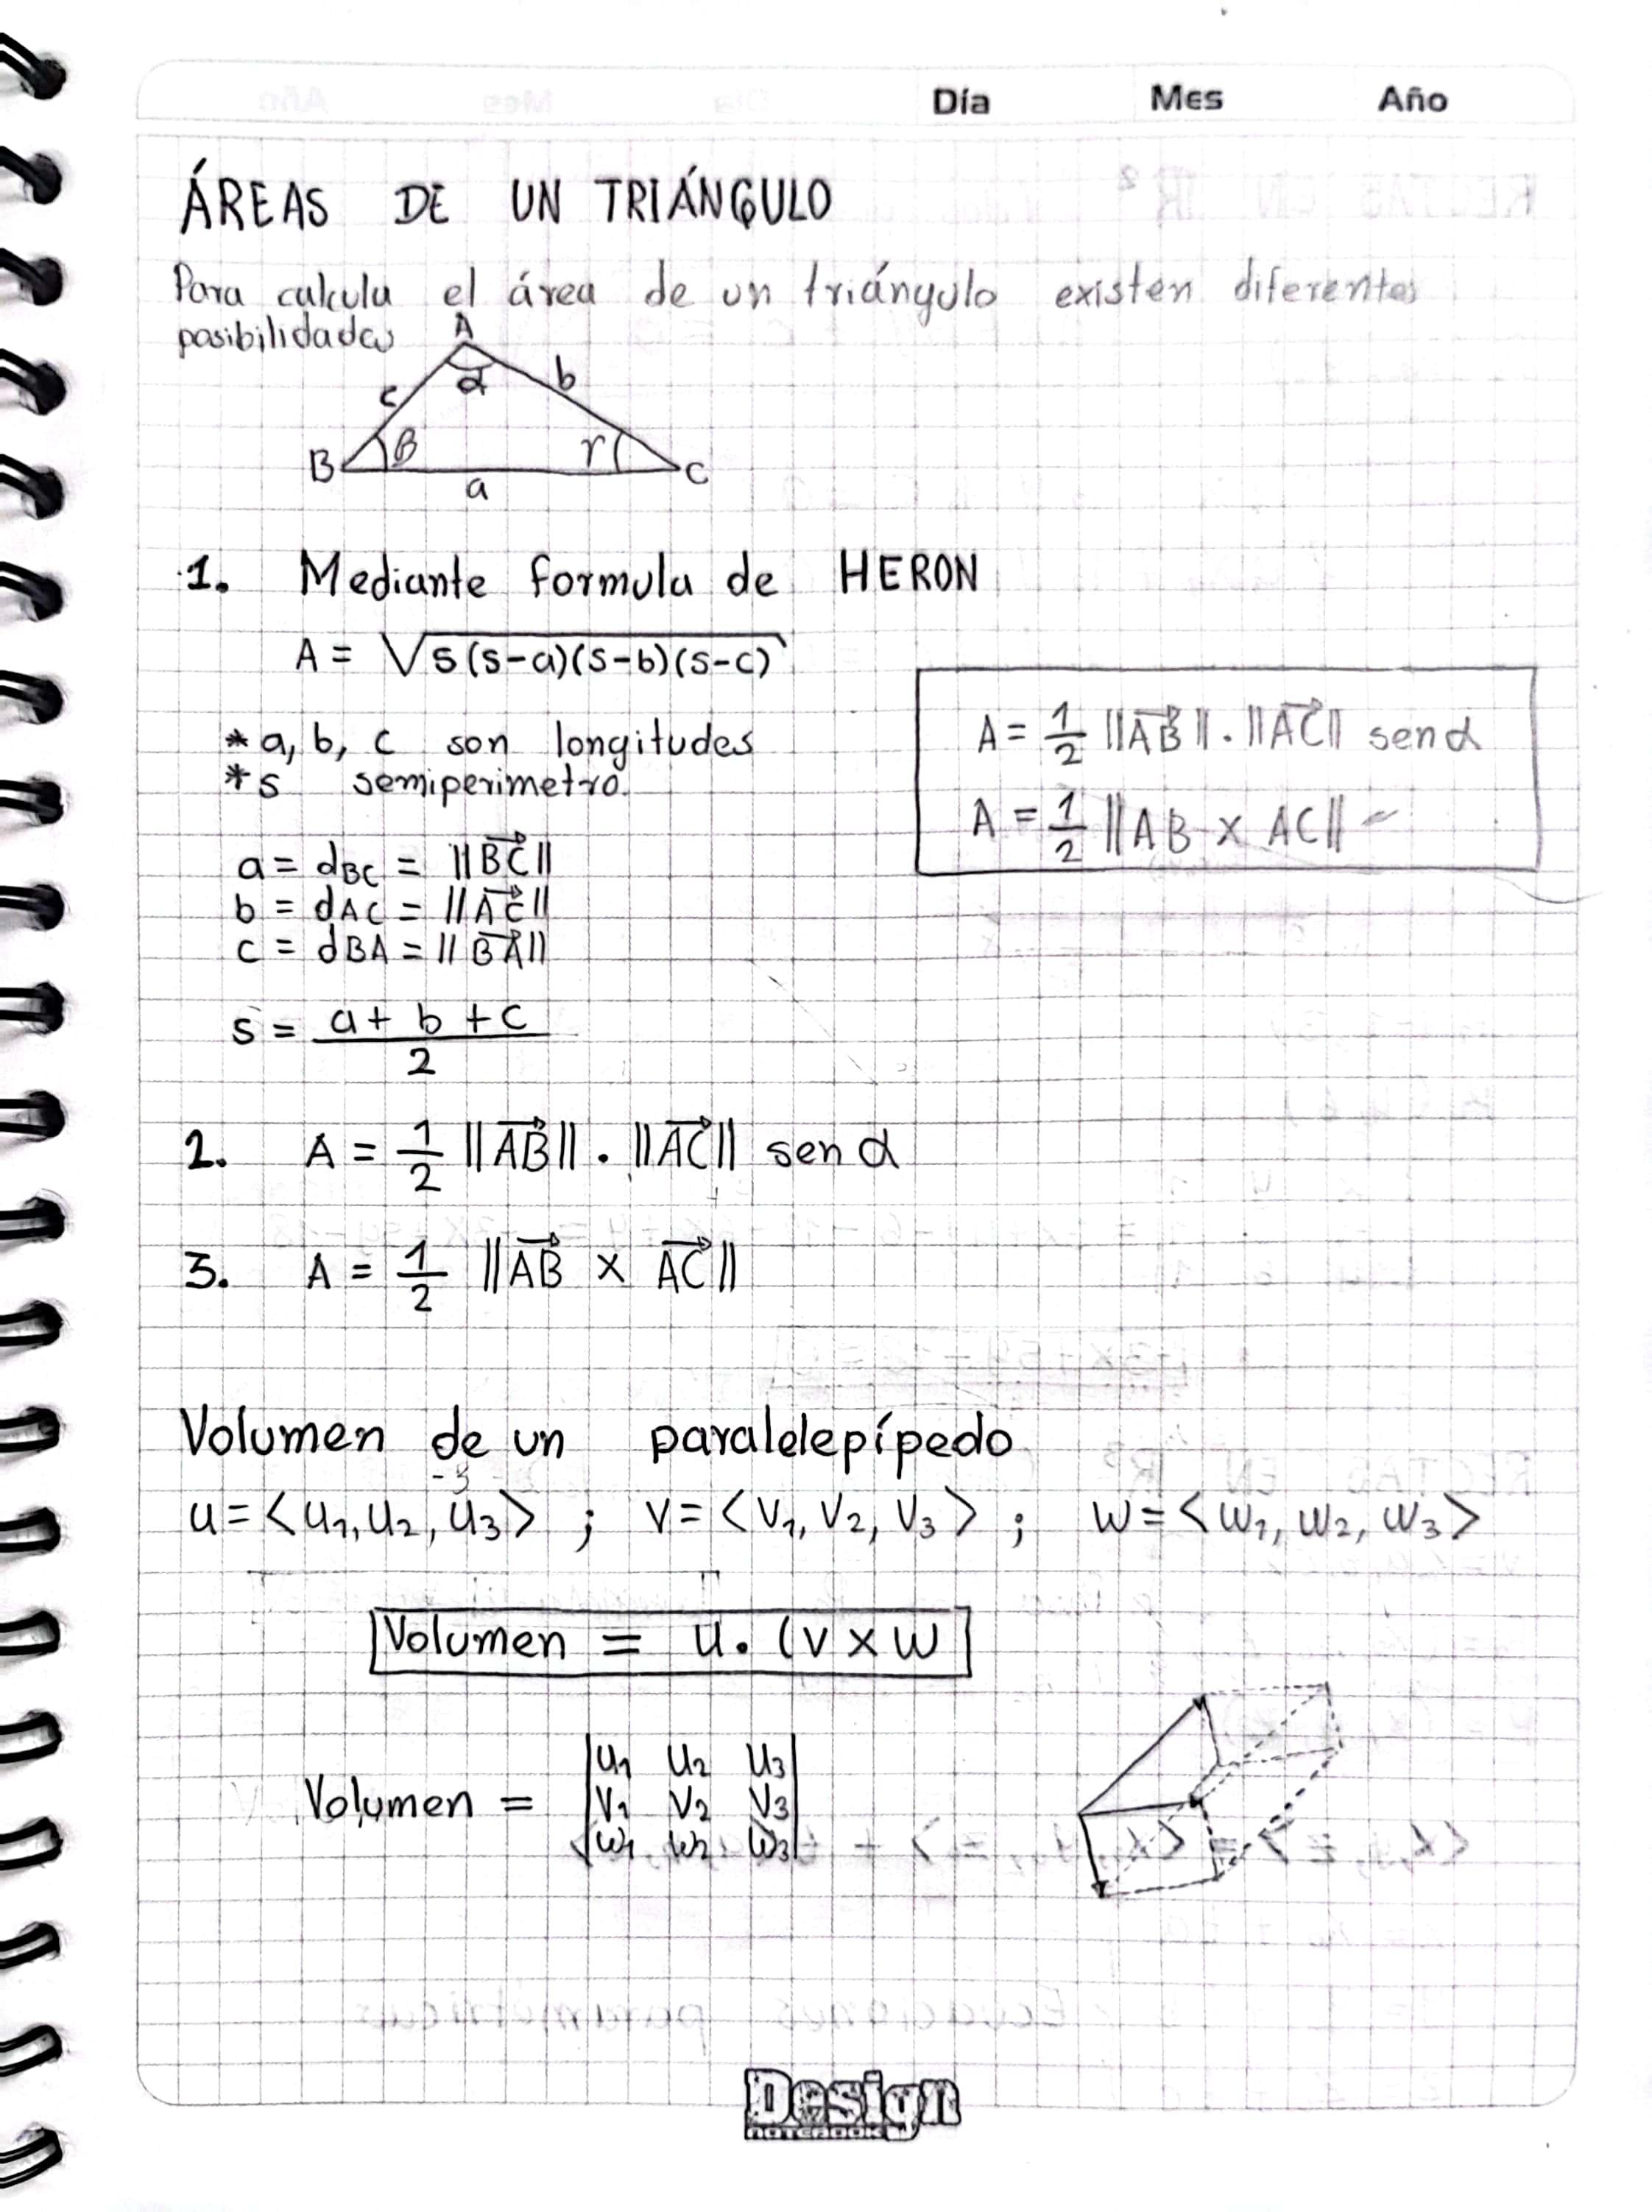 Día Mes Año
ÁREAS DE UN TRIÁNGULO
Para calcula el área de un triángulo existen diferentes
posibilidades
A
α
c b
B β γ C
a
1. Mediante formula de HERON
A = √s(s-a)(s-b)(s-c)
* a, b, c son longitudes
* s semiperimetro.
A = 1/2 ||AB→|| . ||AC→|| sen α
A = 1/2 ||AB x AC||
a = dBC = ||BC→||
b = dAC = ||AC→||
c = dBA = ||BA→||
s = a + b + c / 2
2. A = 1/2 ||AB→|| . ||AC→|| sen α
3. A = 1/2 ||AB→ x AC→||
Volumen de un paralelepípedo
u = <u1, u2, u3> ; v = <v1, v2, v3> ; w = <w1, w2, w3>
Volumen = u . (v x w
Volumen = |u1 u2 u3|
|v1 v2 v3|
|w1 w2 w3|
Design
NOTEBOOK